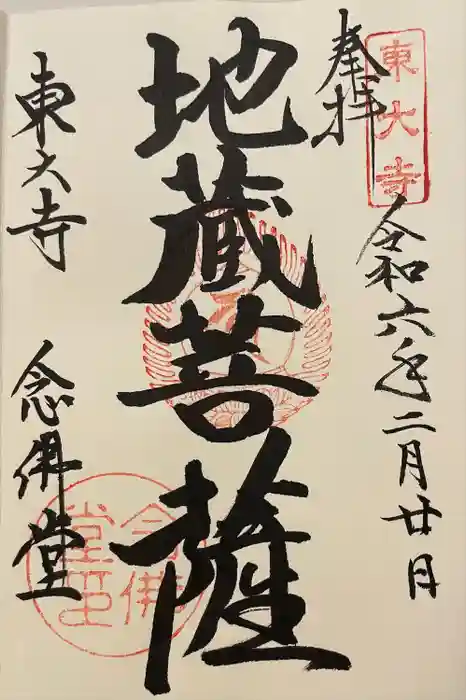 奉拝
東大寺
令和六年二月廿日
地蔵菩薩
東大寺
念佛堂
念佛
堂印